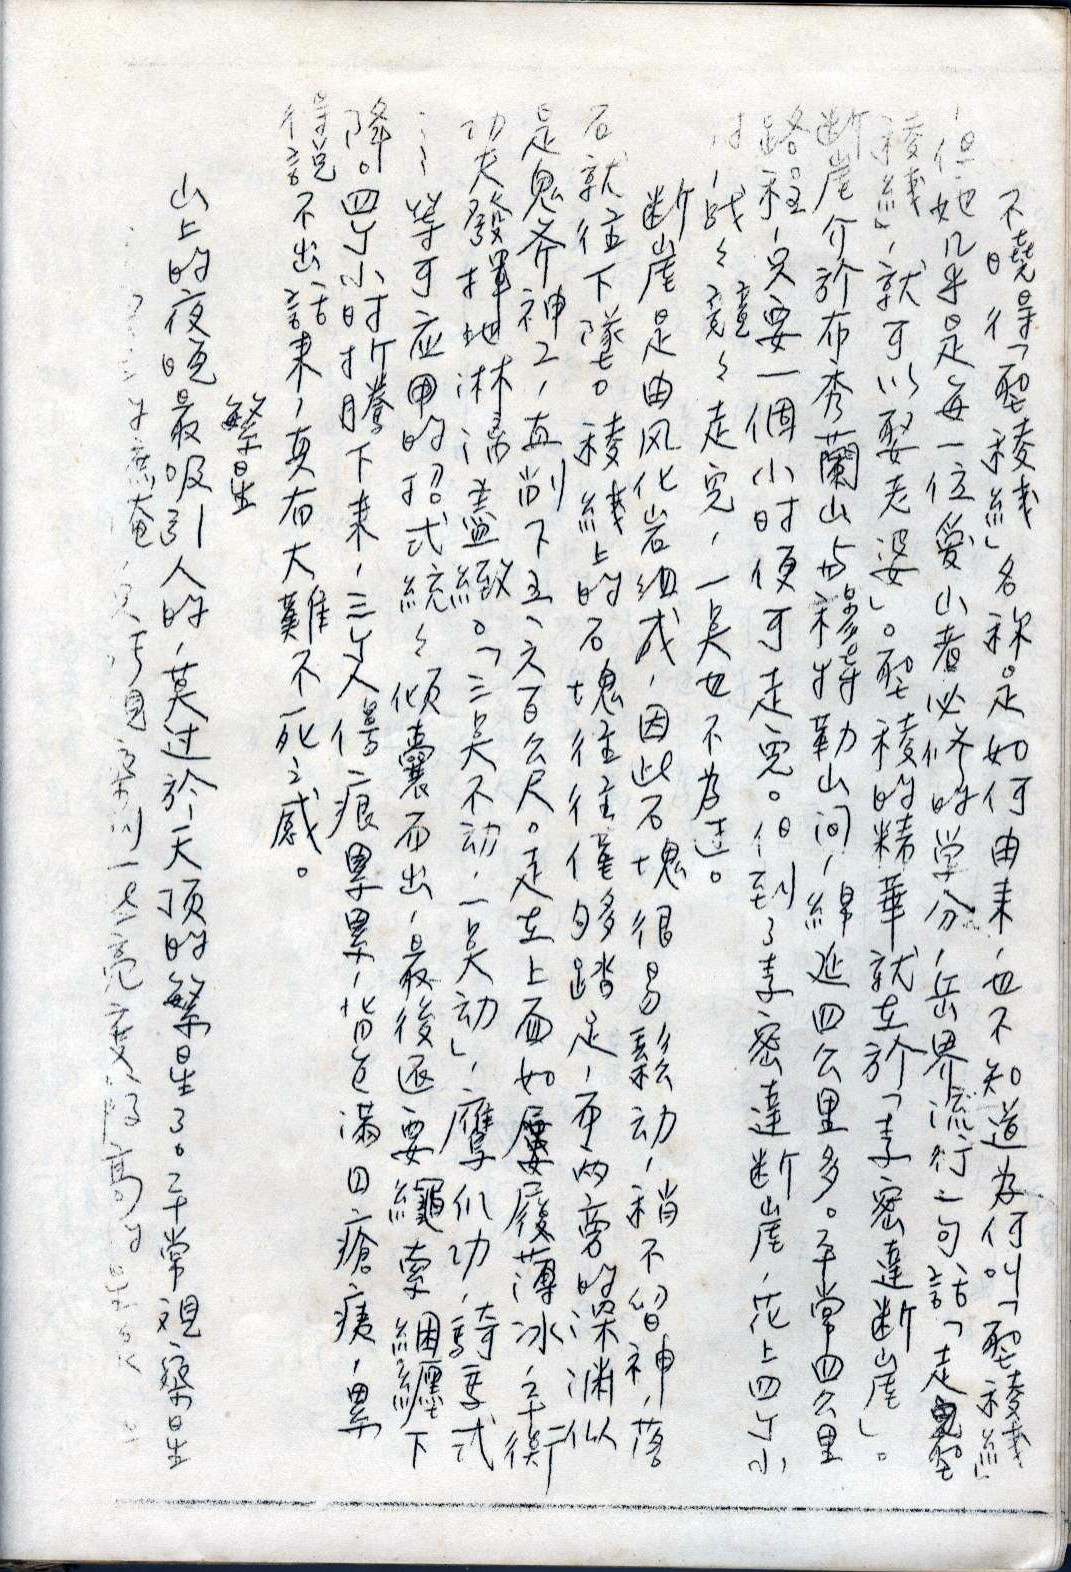 不曉得「聖稜線」名称是如何由来，也不知道为何叫「聖稜線」
，但她几乎是每一位愛山者必修的学分，岳界流行一句話「走完聖
稜線』，就可以娶老婆」。聖稜的精華就在於「素密達断崖」。
断崖介於布秀蘭山与穆特勒山间，綿延四公里多。平常四公里
路程，只要一個小时便可走完。但到了素密達断崖，花上四个小
时，战々兢々走完，一点也不为过。
断崖是由风化岩组成，因此石塊很易鬆动，稍不留神，落
石就往下墜。稜線上的石塊往往僅夠踏足，而两旁的深渊似
是鬼斧神工，直削下五、六百公尺。走在上面如屢履薄冰，平衡
功夫發揮地淋漓盡緻。「三点不动，一点动」，鷹爪功，騎马式
…等可应用的招式統々傾囊而出，最後还要繩索綑纏下
降。四个小时折騰下来，三个人傷痕累累，背包满目瘡痍，累
得說不出話来，真有大難不死之感。
繁星
山上的夜晚最吸引人的，莫过於天顶的繁星了。平常观察星